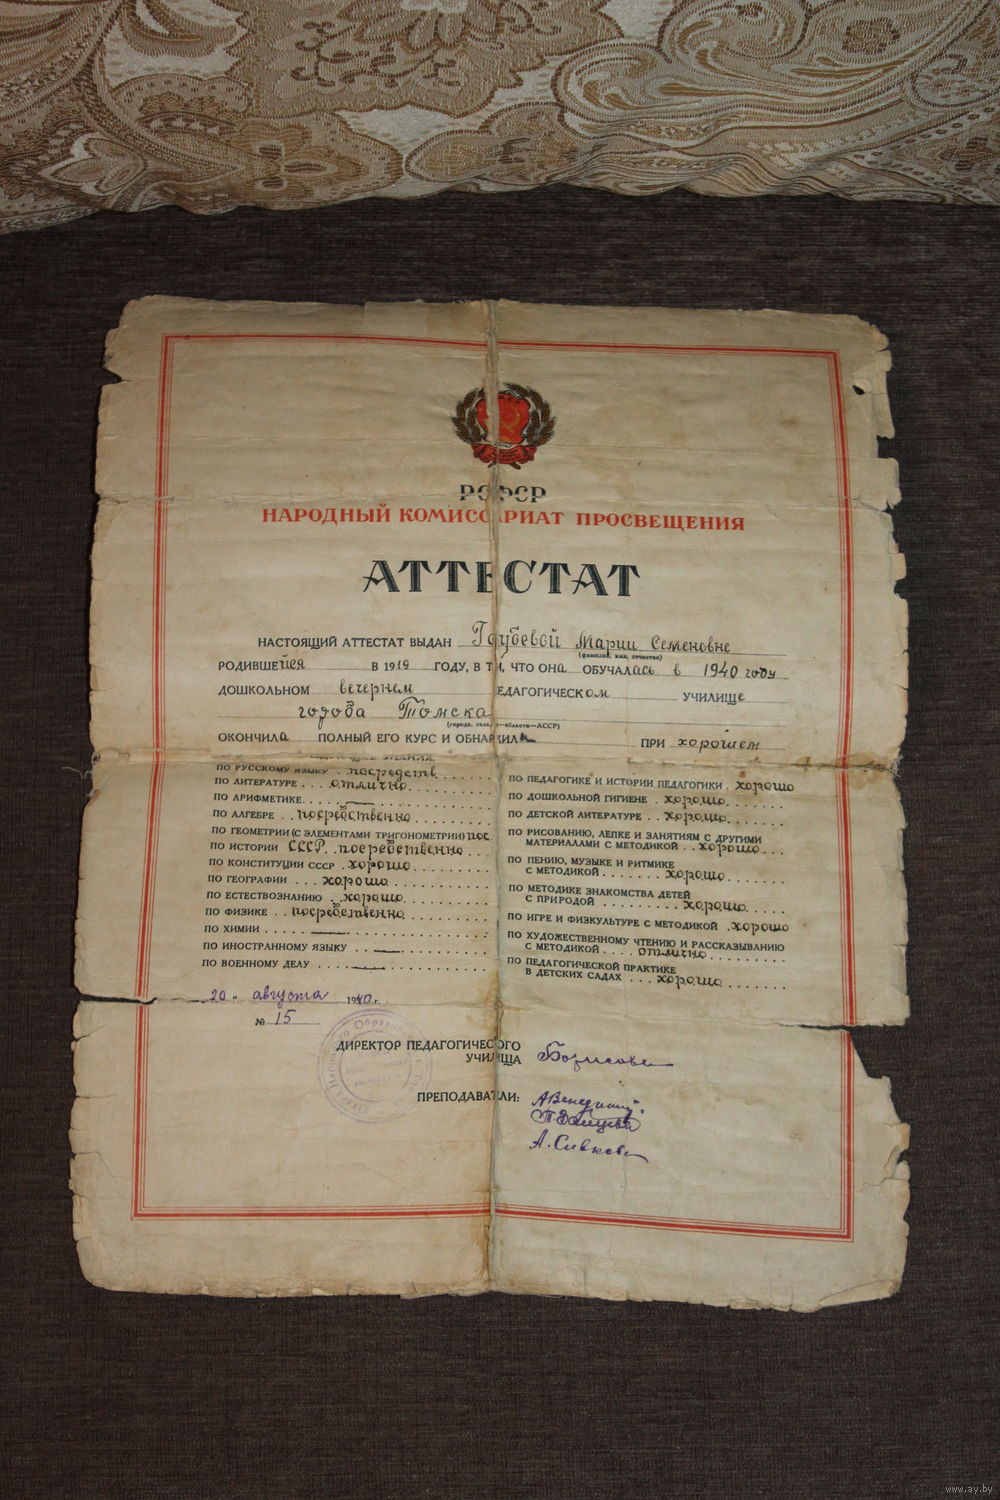 РСФСР
НАРОДНЫЙ КОМИССАРИАТ ПРОСВЕЩЕНИЯ
АТТЕСТАТ
НАСТОЯЩИЙ АТТЕСТАТ ВЫДАН Марии Семеновне
(фамилия, имя, отчество)
РОДИВШЕЙСЯ В 1919 ГОДУ, В ТОМ, ЧТО ОНА ОБУЧАЛАСЬ В 1940 году
ДОШКОЛЬНОМ вечернем ПЕДАГОГИЧЕСКОМ УЧИЛИЩЕ
города Томска
(города, села, области—АССР)
ОКОНЧИЛА ПОЛНЫЙ ЕГО КУРС И ОБНАРУЖИЛА ПРИ хорошем
ЗНАНИЯ:
ПО РУССКОМУ ЯЗЫКУ . посредств.
ПО ЛИТЕРАТУРЕ . . . отлично
ПО АРИФМЕТИКЕ. . . —
ПО АЛГЕБРЕ . . посредственно
ПО ГЕОМЕТРИИ (С ЭЛЕМЕНТАМИ ТРИГОНОМЕТРИИ) пос.
ПО ИСТОРИИ СССР . посредственно
ПО КОНСТИТУЦИИ СССР . хорошо
ПО ГЕОГРАФИИ . . . хорошо
ПО ЕСТЕСТВОЗНАНИЮ . хорошо
ПО ФИЗИКЕ . . посредственно
ПО ХИМИИ . . . —
ПО ИНОСТРАННОМУ ЯЗЫКУ . . —
ПО ВОЕННОМУ ДЕЛУ . . . . —
ПО ПЕДАГОГИКЕ И ИСТОРИИ ПЕДАГОГИКИ . хорошо
ПО ДОШКОЛЬНОЙ ГИГИЕНЕ . хорошо
ПО ДЕТСКОЙ ЛИТЕРАТУРЕ . . хорошо
ПО РИСОВАНИЮ, ЛЕПКЕ И ЗАНЯТИЯМ С ДРУГИМИ
МАТЕРИАЛАМИ С МЕТОДИКОЙ . . хорошо
ПО ПЕНИЮ, МУЗЫКЕ И РИТМИКЕ
С МЕТОДИКОЙ . . . . . . . хорошо
ПО МЕТОДИКЕ ЗНАКОМСТВА ДЕТЕЙ
С ПРИРОДОЙ . . . . . . . . хорошо
ПО ИГРЕ И ФИЗКУЛЬТУРЕ С МЕТОДИКОЙ . хорошо
ПО ХУДОЖЕСТВЕННОМУ ЧТЕНИЮ И РАССКАЗЫВАНИЮ
С МЕТОДИКОЙ . . . . отлично
ПО ПЕДАГОГИЧЕСКОЙ ПРАКТИКЕ
В ДЕТСКИХ САДАХ . . . хорошо
„20" августа 1940 г.
№ 15
ДИРЕКТОР ПЕДАГОГИЧЕСКОГО
УЧИЛИЩА Борисова
ПРЕПОДАВАТЕЛИ:
А. Сивкова
www.ay.by